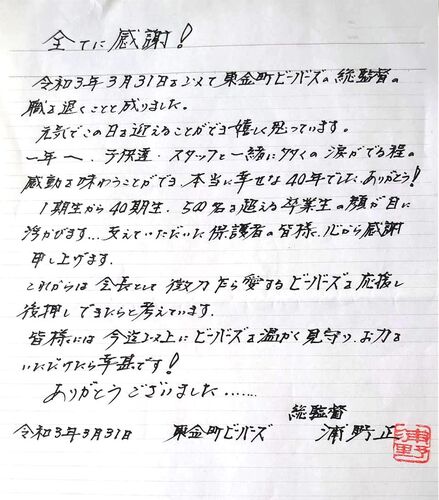 全てに感謝!
令和3年3月31日をもって東金町ビーバーズの総監督の
職を退くことと成りました。
元気でこの日を迎えることができ嬉しく思っています。
一年一年、子供達・スタッフと一緒に多くの涙がでる程の
感動を味わうことができ、本当に幸せな40年でした。ありがとう!
1期生から40期生、500名を超える卒業生の顔が目に
浮かびます…支えていただいた保護者の皆様、心から感謝
申し上げます。
これからは会長として微力乍ら愛するビーバーズを応援し
後押しできたらと考えています。
皆様には今迄以上にビーバーズを温かく見守り、お力を
いただけたら幸甚です!
ありがとうございました……
総監督
令和3年3月31日 東金町ビーバーズ 浦野正
浦野